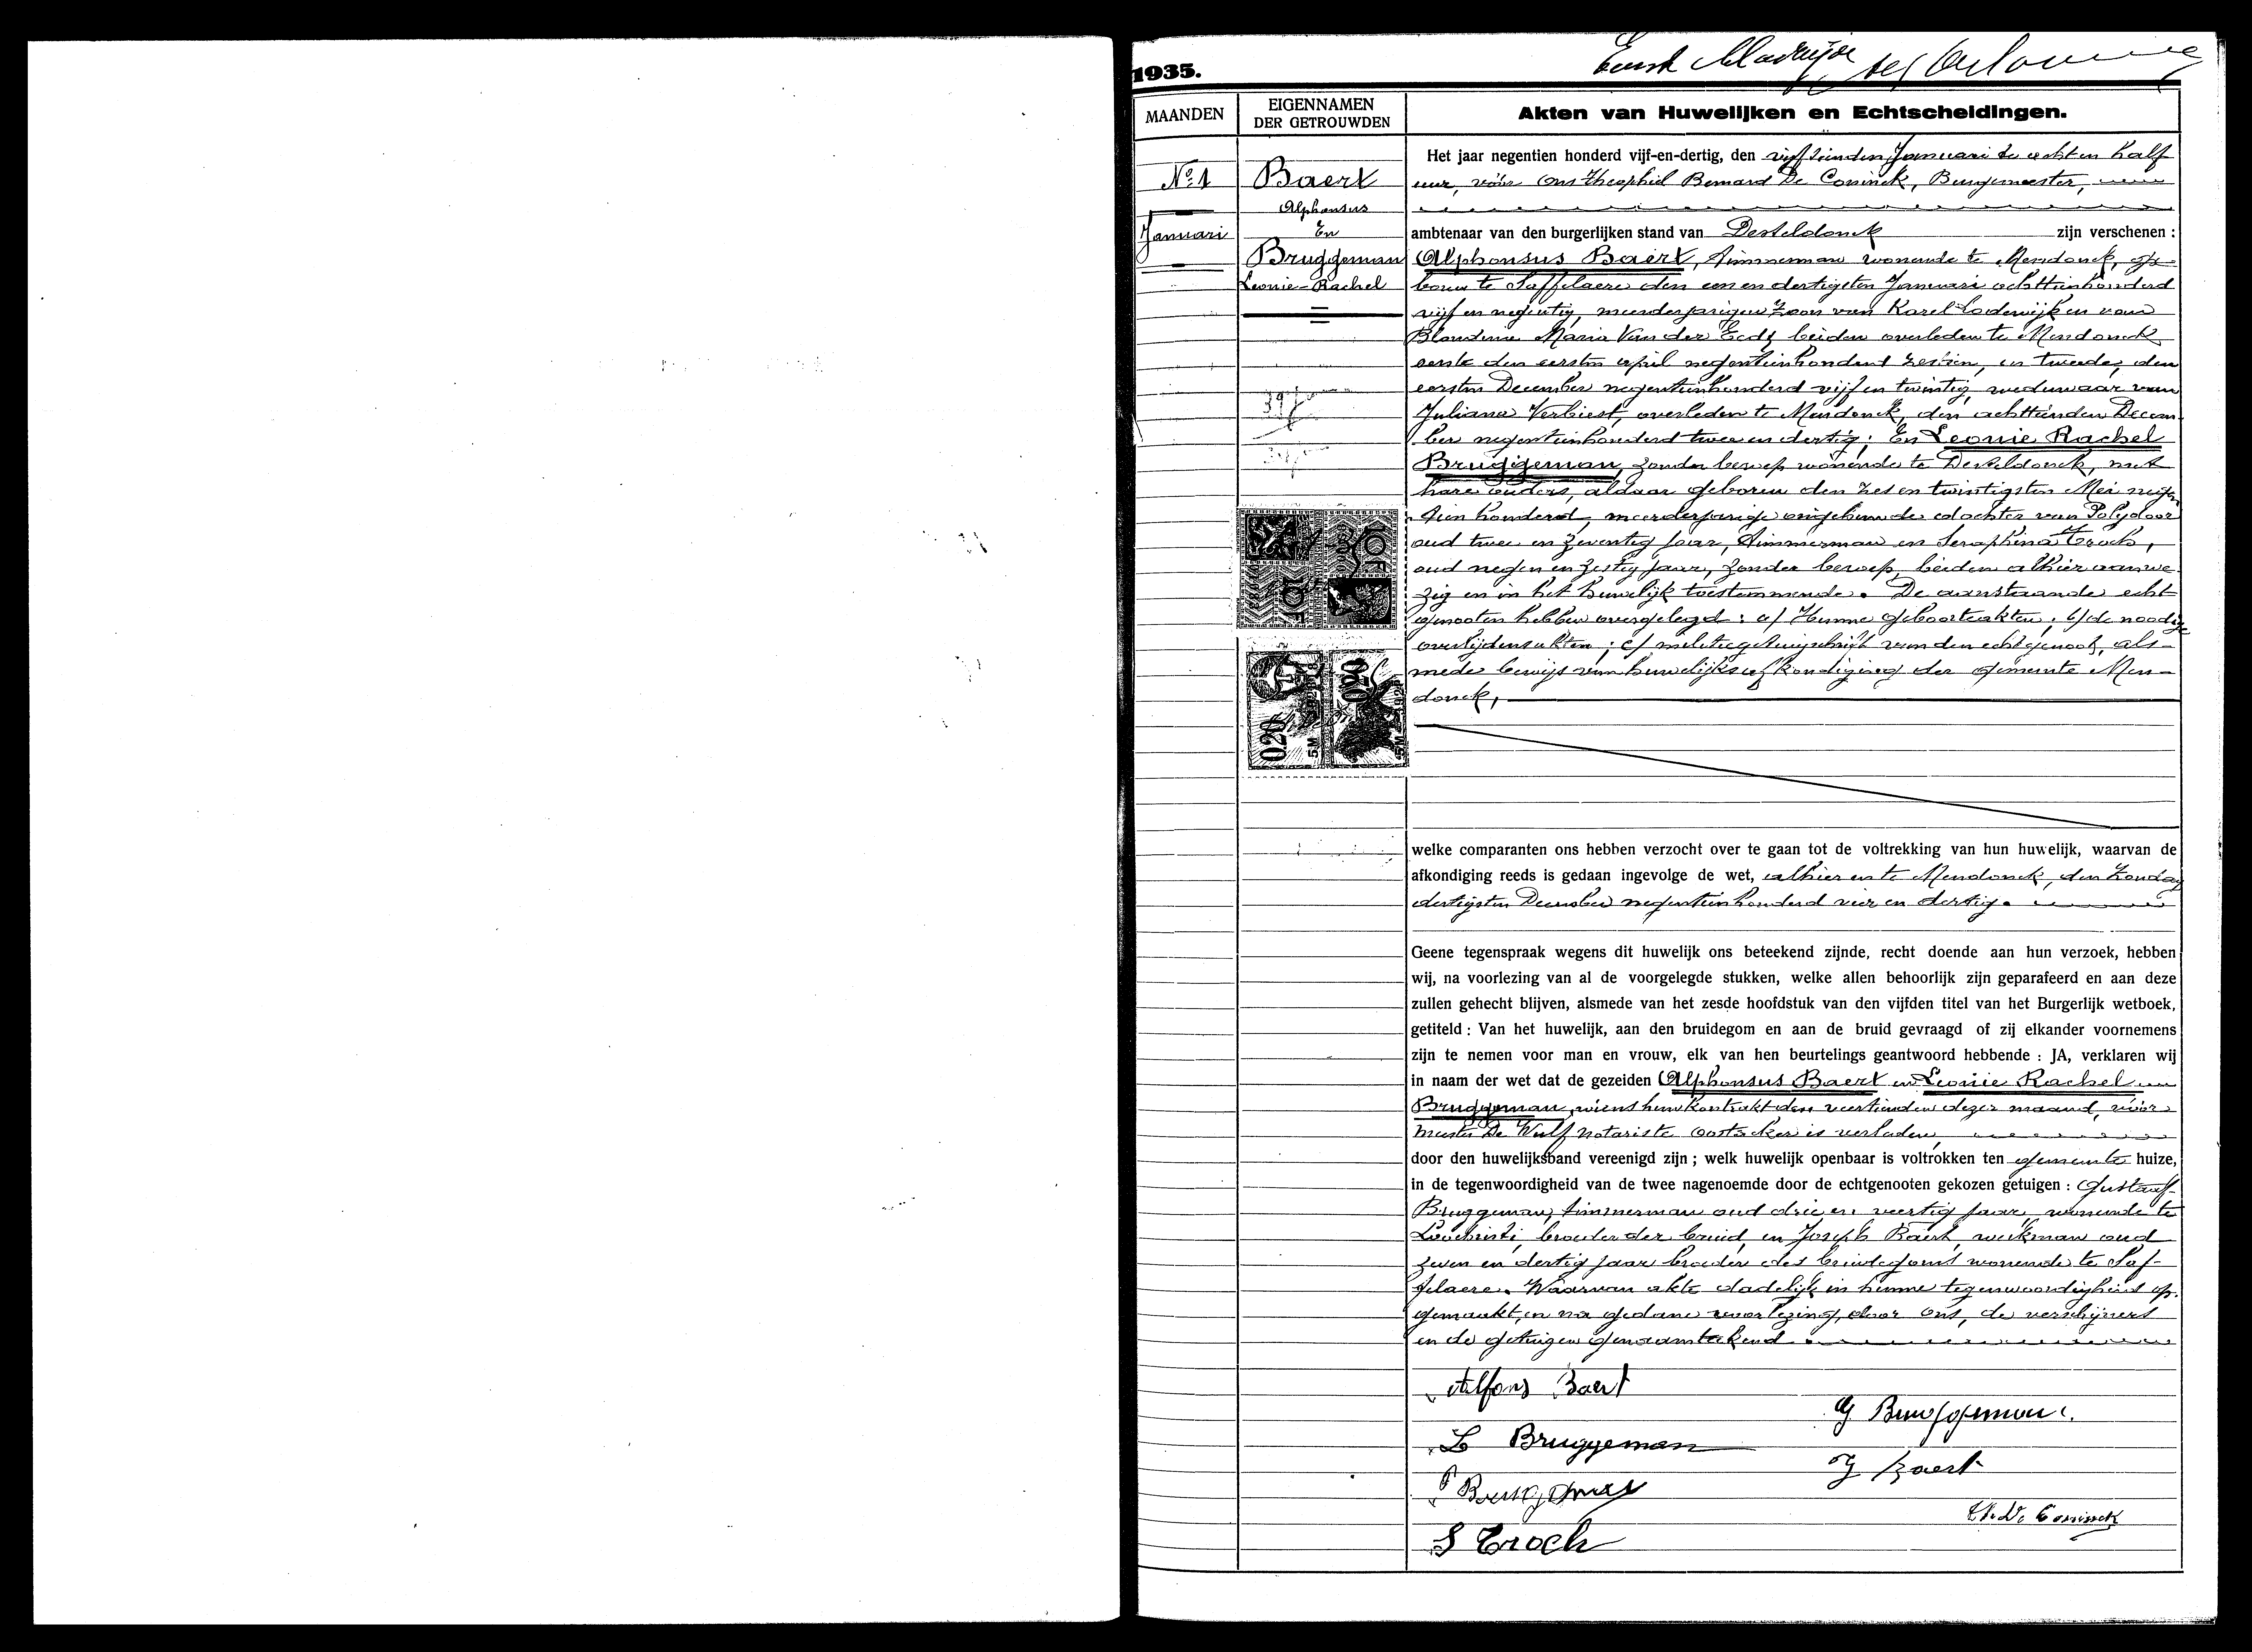 1935.
MAANDEN
EIGENNAMEN
DER GETROUWDEN
Akten van Huwelijken en Echtscheidingen.
No. 1
Januari
Baert
Alphonsus
En
Bruggeman
Leonie-Rachel
Het jaar negentien honderd vijf-en-dertig, den vijftienden Januari te acht en half
uur, vóór Ons Theophiel Bernard De Coninck, Burgemeester,
ambtenaar van den burgerlijken stand van Desteldonck zijn verschenen :
Alphonsus Baert, timmerman wonende te Mendonck, ge-
boren te Saffelaere den een en dertigsten Januari achttienhonderd
vijf en negentig, meerderjarigen Zoon van Karel Lodewijk en van
Blondine Maria Van der Eedt beiden overleden te Mendonck
eerste den eersten april negentienhonderd zestien, en tweede, den
eersten December negentienhonderd vijf en twintig, weduwaar van
Juliana Verbiest, overleden te Mendonck, den achttienden Decem-
ber negentienhonderd twee en dertig; En Leonie Rachel
Bruggeman, zonder beroep wonende te Desteldonck, met
hare ouders, aldaar geboren den zes en twintigsten Mei negen
tien honderd, meerderjarige ongehuwde dochter van Polydoor
oud twee en zeventig jaar, timmerman en Seraphina Troch,
oud negen en zestig jaar, zonder beroep, beiden alhier aanwe-
zig en in het huwelijk toestemmende. De aanstaande echt
genooten hebben overgelegd : a/ Hunne geboorteakten; b/ de noodige
overlijdensakten; c/ militiegetuigschrift van den echtgenoot, als-
mede bewijs van huwelijksafkondiging der gemeente Men-
donck,
10F
10F
0.20
0.20
5M
5M
welke comparanten ons hebben verzocht over te gaan tot de voltrekking van hun huwelijk, waarvan de
afkondiging reeds is gedaan ingevolge de wet, alhier en te Mendonck, den Zondag
dertigsten December negentienhonderd vier en dertig.
Geene tegenspraak wegens dit huwelijk ons beteekend zijnde, recht doende aan hun verzoek, hebben
wij, na voorlezing van al de voorgelegde stukken, welke allen behoorlijk zijn geparafeerd en aan deze
zullen gehecht blijven, alsmede van het zesde hoofdstuk van den vijfden titel van het Burgerlijk wetboek,
getiteld : Van het huwelijk, aan den bruidegom en aan de bruid gevraagd of zij elkander voornemens
zijn te nemen voor man en vrouw, elk van hen beurtelings geantwoord hebbende : JA, verklaren wij
in naam der wet dat de gezeiden Alphonsus Baert en Leonie Rachel
Bruggeman, wiens huwkontrakt den veertienden dezer maand, vóór
meester De Wulf notaris te Oostacker is verladen,
door den huwelijksband vereenigd zijn ; welk huwelijk openbaar is voltrokken ten gemeente huize,
in de tegenwoordigheid van de twee nagenoemde door de echtgenooten gekozen getuigen : Gustaaf
Bruggeman, timmerman oud drie en veertig jaar, wonende te
Loochristi, broeder der bruid, en Joseph Baert, werkman oud
zeven en dertig jaar broeder des bruidegoms wonende te Saf-
felaere. Waarvan akte dadelijk in hunne tegenwoordigheid op-
gemaakt, en na gedane voorlezing, door Ons, de verschijners
en de getuigen genaamteekend.
Alfons Baert
G Bruggeman.
L Bruggeman
J Baert
P Bruggeman
Th. De Coninck
S Troch